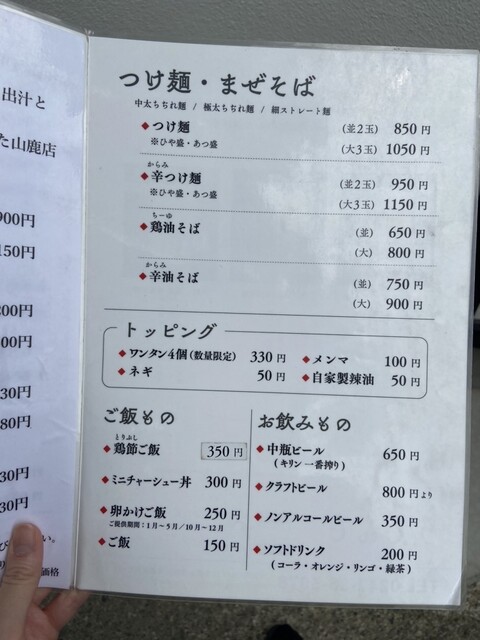 出汁と
た山鹿店
900円
150円
200円
00円
30円
80円
30円
30円
価格
つけ麺・まぜそば
中太ちぢれ麺 / 極太ちぢれ麺 / 細ストレート麺
◆つけ麺 (並2玉) 850円
※ひや盛・あつ盛 (大3玉) 1050円
からみ
◆辛つけ麺 (並2玉) 950円
※ひや盛・あつ盛 (大3玉) 1150円
ちーゆ
◆鶏油そば (並) 650円
(大) 800円
からみ
◆辛油そば (並) 750円
(大) 900円
トッピング
◆ワンタン4個(数量限定) 330円 ◆メンマ 100円
◆ネギ 50円 ◆自家製辣油 50円
ご飯もの
とりぶし
◆鶏節ご飯 350円
◆ミニチャーシュー丼 300円
◆卵かけご飯 250円
ご提供期間:1月〜5月/10月〜12月
◆ご飯 150円
お飲みもの
◆中瓶ビール 650円
(キリン一番搾り)
◆クラフトビール 800円より
◆ノンアルコールビール 350円
◆ソフトドリンク 200円
(コーラ・オレンジ・リンゴ・緑茶)